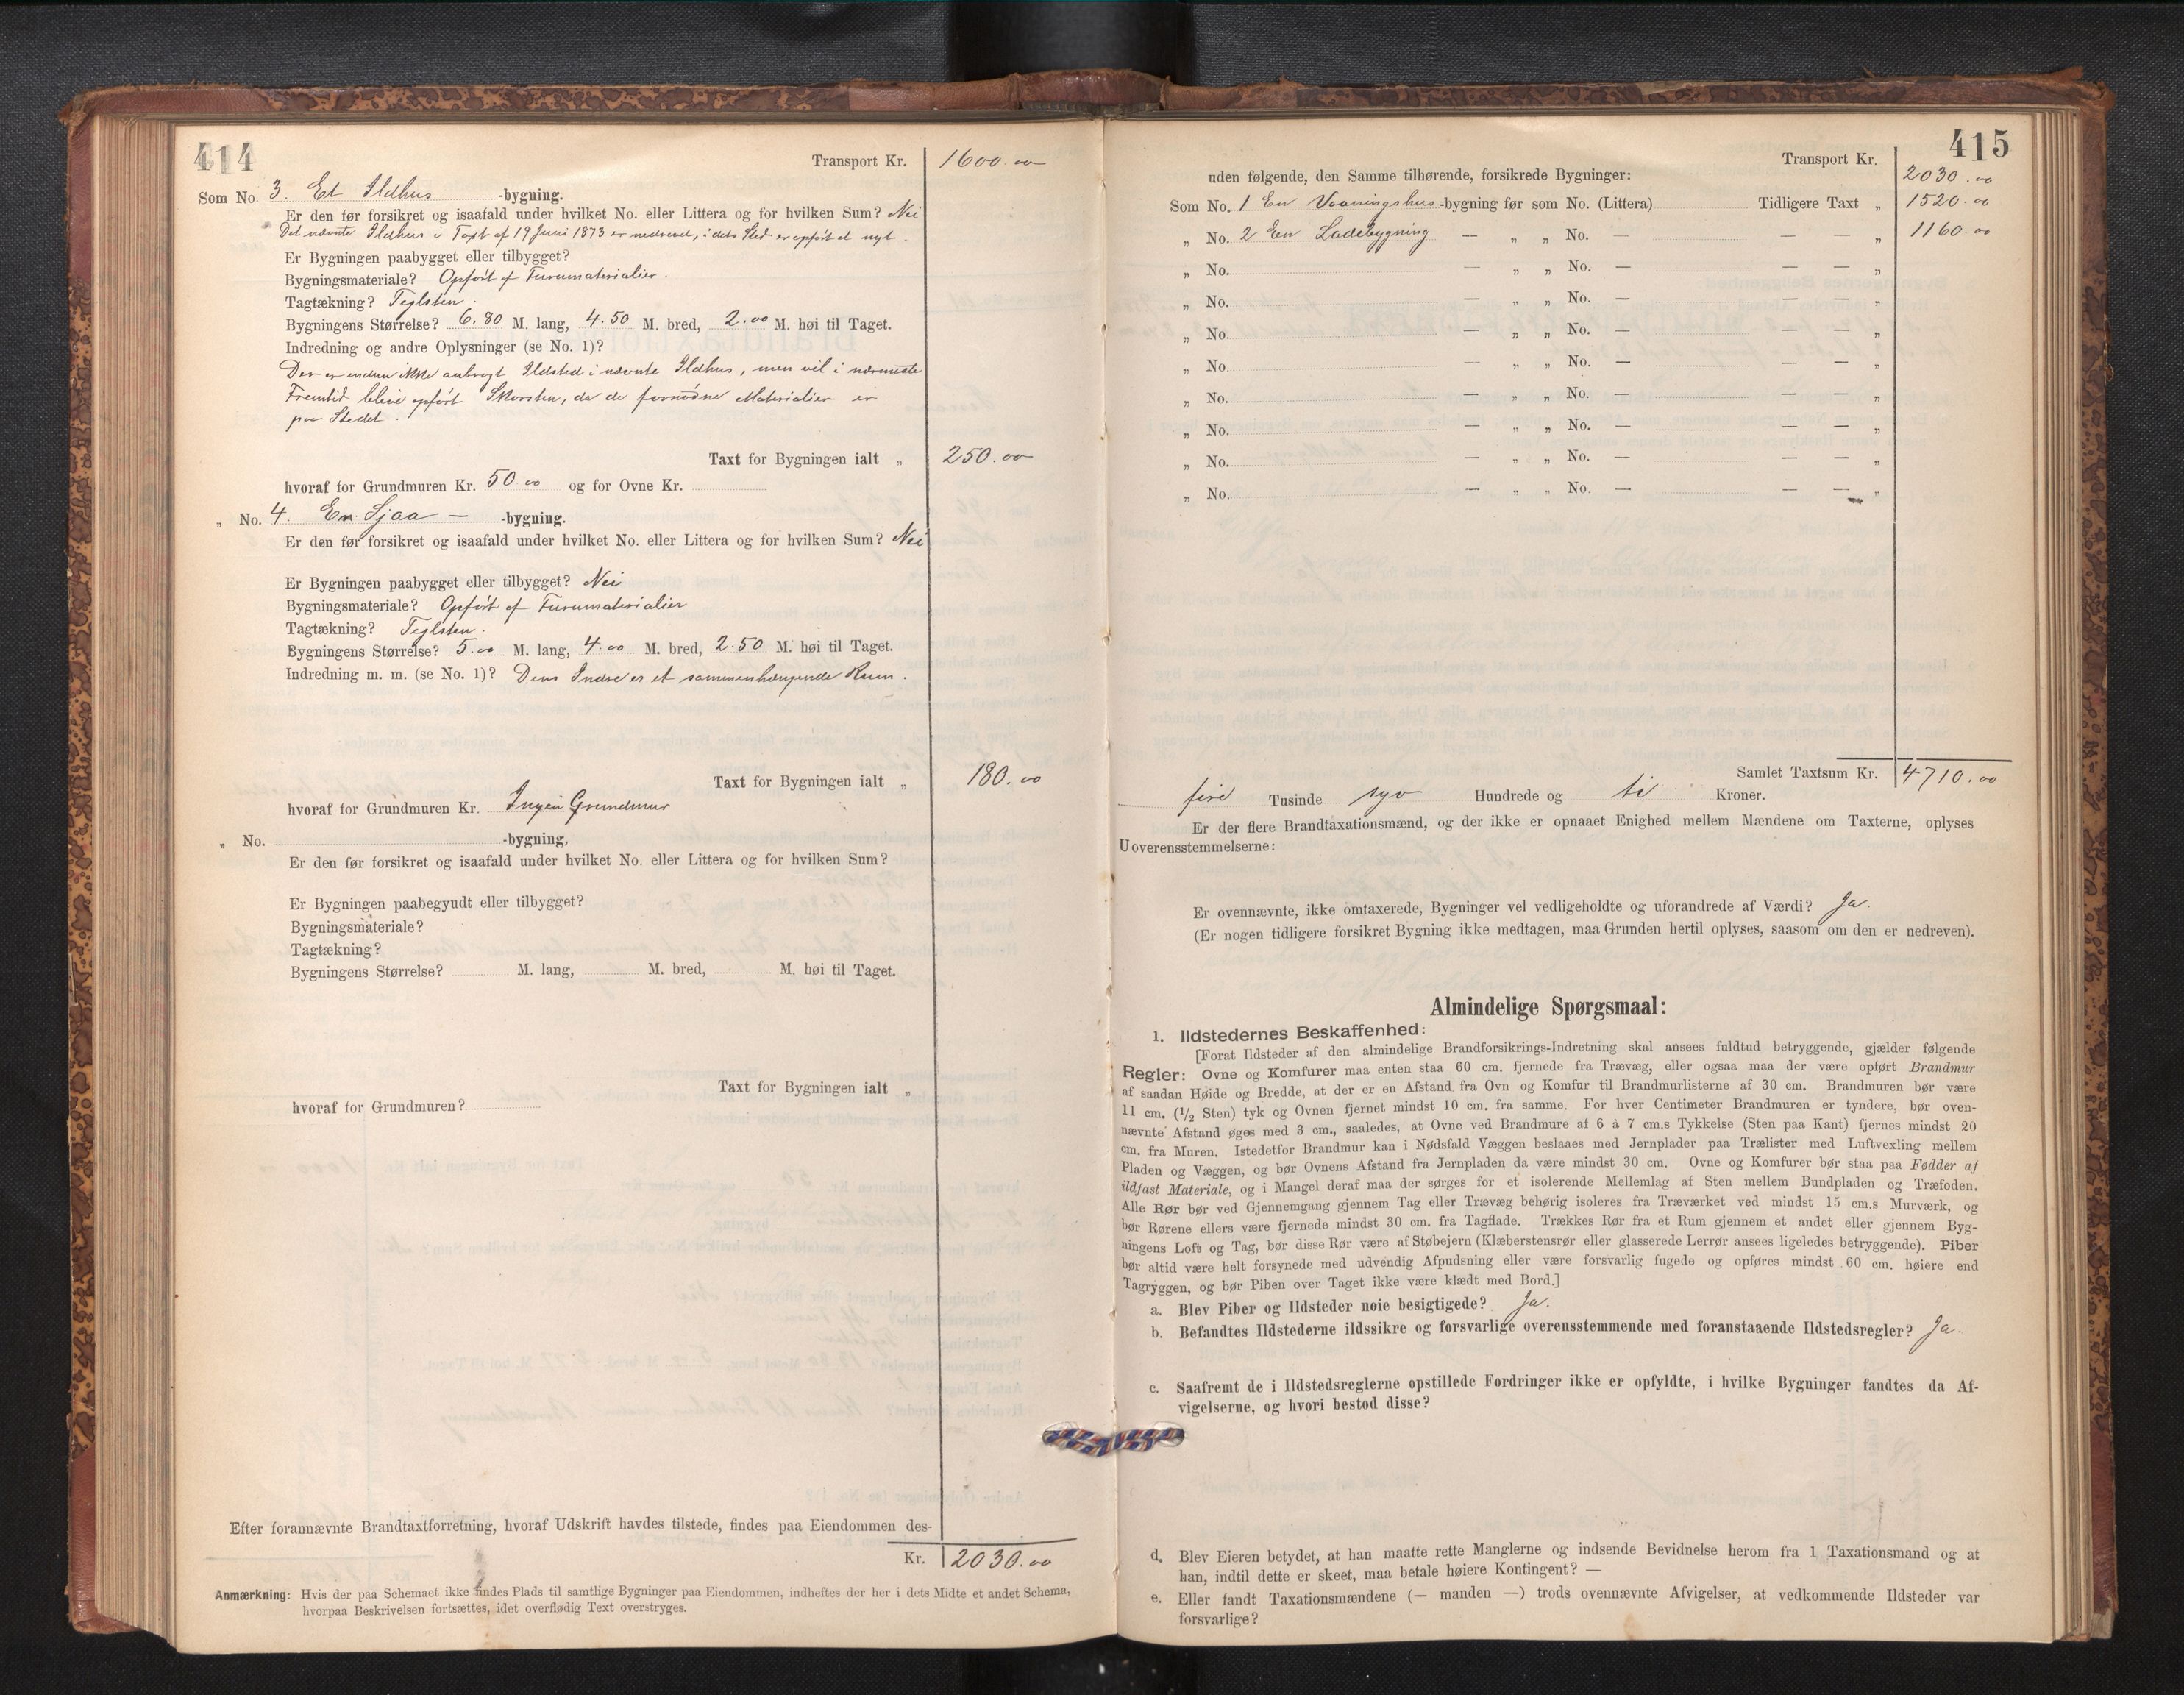 414
Transport Kr. 1600.00
Som No. 3. Et Ildhus -bygning.
Er den før forsikret og isaafald under hvilket No. eller Littera og for hvilken Sum? Nei
Det nævnte Ildhus i Taxt af 19 Juni 1873 er nedrevet, i dets Sted er opført et nyt.
Er Bygningen paabygget eller tilbygget?
Bygningsmateriale? Opført af Furumaterialier.
Tagtækning? Teglsten.
Bygningens Størrelse? 6.80 M. lang, 4.50 M. bred, 2.00 M. høi til Taget.
Indredning og andre Oplysninger (se No. 1)?
Der er endnu ikke anbragt Ildsted i nævnte Ildhus, men vil i nærmeste
Fremtid blive opført Skorsten, da de fornødne Materialier er
paa Stedet.
Taxt for Bygningen ialt „ 250.00
hvoraf for Grundmuren Kr. 50.00 og for Ovne Kr.
„ No. 4. En Sjaa — -bygning.
Er den før forsikret og isaafald under hvilket No. eller Littera og for hvilken Sum? Nei
Er Bygningen paabygget eller tilbygget? Nei
Bygningsmateriale? Opført af Furumaterialier
Tagtækning? Teglsten.
Bygningens Størrelse? 5.00 M. lang, 4.00 M. bred, 2.50 M. høi til Taget.
Indredning m. m. (se No. 1)? Dens Indre er et sammenhængende Rum.
Taxt for Bygningen ialt „ 180.00
hvoraf for Grundmuren Kr. Ingen Grundmur
„ No. -bygning,
Er den før forsikret og isaafald under hvilket No. eller Littera og for hvilken Sum?
Er Bygningen paabegyudt eller tilbygget?
Bygningsmateriale?
Tagtækning?
Bygningens Størrelse? M. lang, M. bred, M. høi til Taget.
Taxt for Bygningen ialt „
hvoraf for Grundmuren?
Efter forannævnte Brandtaxtforretning, hvoraf Udskrift havdes tilstede, findes paa Eiendommen des-
Kr. 2030.00
Anmærkning: Hvis der paa Schemaet ikke findes Plads til samtlige Bygninger paa Eiendommen, indheftes der her i dets Midte et andet Schema,
hvorpaa Beskrivelsen fortsættes, idet overflødig Text overstryges.
415
Transport Kr. 2030.00
uden følgende, den Samme tilhørende, forsikrede Bygninger:
Som No. 1 En Vaaningshus -bygning før som No. (Littera) Tidligere Taxt „ 1520.00
„ No. 2 En Ladebygning — „ „ No. — — — „ 1160.00
„ No. — „ „ No. — — — „
„ No. — „ „ No. — — — „
„ No. — „ „ No. — — — „
„ No. — „ „ No. — — — „
„ No. — „ „ No. — — — „
„ No. — „ „ No. — — — „
„ No. — „ „ No. — — — „
„ No. — „ „ No. — — — „
Samlet Taxtsum Kr. 4710.00
fire Tusinde syv Hundrede og ti Kroner.
Er der flere Brandtaxationsmænd, og der ikke er opnaaet Enighed mellem Mændene om Taxterne, oplyses
Uoverensstemmelserne:
Er ovennævnte, ikke omtaxerede, Bygninger vel vedligeholdte og uforandrede af Værdi? Ja.
(Er nogen tidligere forsikret Bygning ikke medtagen, maa Grunden hertil oplyses, saasom om den er nedreven).
Almindelige Spørgsmaal:
1. Ildstedernes Beskaffenhed:
[Forat Ildsteder af den almindelige Brandforsikrings-Indretning skal ansees fuldtud betryggende, gjælder følgende
Regler: Ovne og Komfurer maa enten staa 60 cm. fjernede fra Trævæg, eller ogsaa maa der være opført Brandmur
af saadan Høide og Bredde, at der er en Afstand fra Ovn og Komfur til Brandmurlisterne af 30 cm. Brandmuren bør være
11 cm. (1/2 Sten) tyk og Ovnen fjernet mindst 10 cm. fra samme. For hver Centimeter Brandmuren er tyndere, bør oven-
nævnte Afstand øges med 3 cm., saaledes, at Ovne ved Brandmure af 6 à 7 cm.s Tykkelse (Sten paa Kant) fjernes mindst 20
cm. fra Muren. Istedetfor Brandmur kan i Nødsfald Væggen beslaaes med Jernplader paa Trælister med Luftvexling mellem
Pladen og Væggen, og bør Ovnens Afstand fra Jernpladen da være mindst 30 cm. Ovne og Komfurer bør staa paa Fødder af
ildfast Materiale, og i Mangel deraf maa der sørges for et isolerende Mellemlag af Sten mellem Bundpladen og Træfoden.
Alle Rør bør ved Gjennemgang gjennem Tag eller Trævæg behørig isoleres fra Træværket ved mindst 15 cm.s Murværk, og
bør Rørene ellers være fjernede mindst 30 cm. fra Tagflade. Trækkes Rør fra et Rum gjennem et andet eller gjennem Byg-
ningens Loft og Tag, bør disse Rør være af Støbejern (Klæberstensrør eller glasserede Lerrør ansees ligeledes betryggende). Piber
bør altid være helt forsynede med udvendig Afpudsning eller være forsvarlig fugede og opføres mindst 60 cm. høiere end
Tagryggen, og bør Piben over Taget ikke være klædt med Bord.]
a. Blev Piber og Ildsteder nøie besigtigede? Ja.
b. Befandtes Ildstederne ildssikre og forsvarlige overensstemmende med foranstaaende Ildstedsregler? Ja.
c. Saafremt de i Ildstedsreglerne opstillede Fordringer ikke er opfyldte, i hvilke Bygninger fandtes da Af-
vigelserne, og hvori bestod disse?
d. Blev Eieren betydet, at han maatte rette Manglerne og indsende Bevidnelse herom fra 1 Taxationsmand og at
han, indtil dette er skeet, maa betale høiere Kontingent? —
e. Eller fandt Taxationsmændene (— manden —) trods ovennævnte Afvigelser, at vedkommende Ildsteder var
forsvarlige?